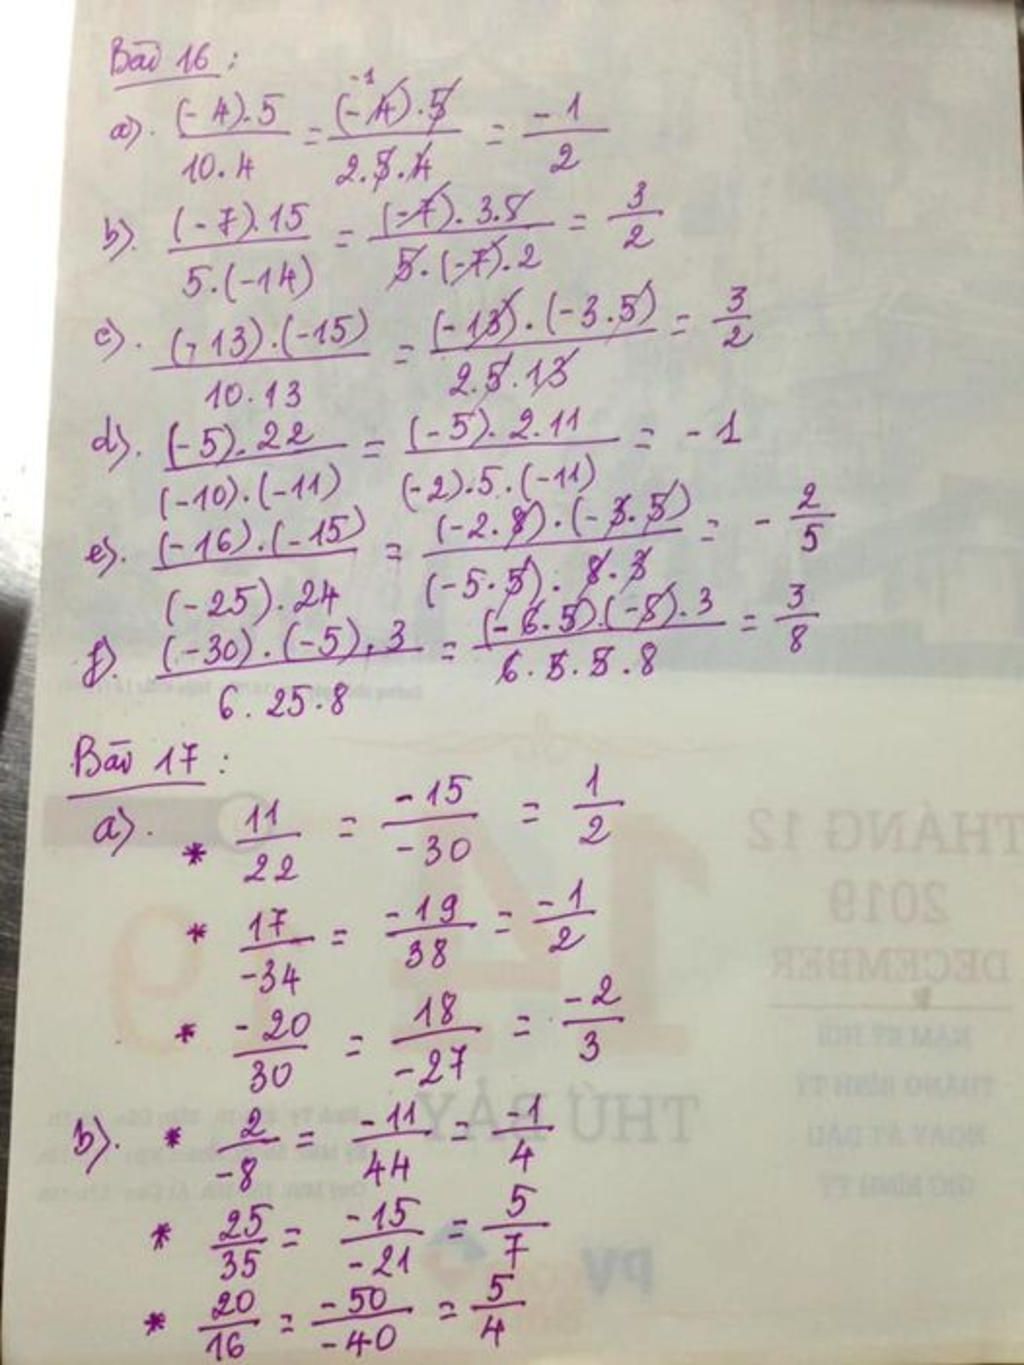 Bài 16 :
a). (-4).5 / 10.4 = (-4).5 / 2.5.4 = -1 / 2
-1
b). (-7).15 / 5.(-14) = (-7).3.5 / 5.(-7).2 = 3 / 2
c). (-13).(-15) / 10.13 = (-13).(-3.5) / 2.5.13 = 3 / 2
d). (-5).22 / (-10).(-11) = (-5).2.11 / (-2).5.(-11) = -1
e). (-16).(-15) / (-25).24 = (-2.8).(-3.5) / (-5.5).8.3 = - 2 / 5
f). (-30).(-5).3 / 6.25.8 = (-6.5).(-5).3 / 6.5.5.8 = 3 / 8
Bài 17 :
a). * 11 / 22 = -15 / -30 = 1 / 2
* 17 / -34 = -19 / 38 = -1 / 2
* -20 / 30 = 18 / -27 = -2 / 3
b). * 2 / -8 = -11 / 44 = -1 / 4
* 25 / 35 = -15 / -21 = 5 / 7
* 20 / 16 = -50 / -40 = 5 / 4
THÁNG 12
2019
DECEMBER
14
THỨ BẢY
PV